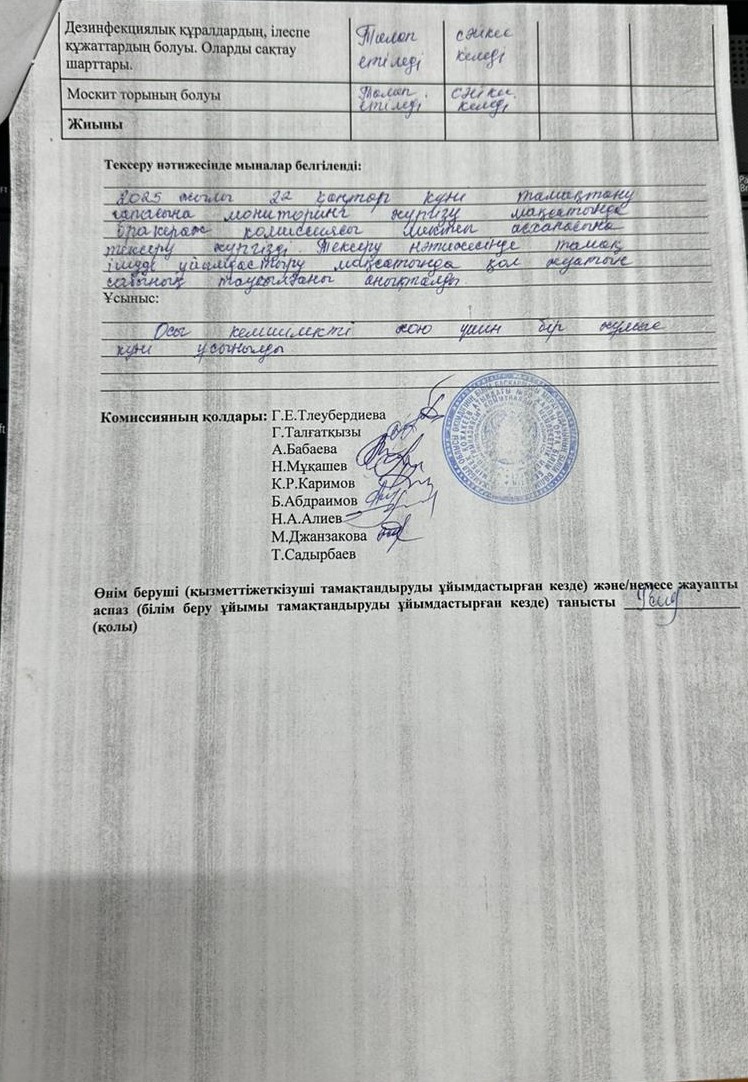 Дезинфекциялық құралдардың, ілеспе
құжаттардың болуы. Оларды сақтау
шарттары.
Талап
етіледі
сәйкес
келеді
Москит торының болуы
Талап
етіледі
сәйкес
келеді
Жиыны
Тексеру нәтижесінде мыналар белгіленді:
2025 жылы 22 қаңтар күні тамақтану
сапасына мониторинг жүргізу мақсатында
бракераж комиссиясы мектеп асханасына
тексеру жүргізді. Тексеру нәтижесінде тамақ
ішуді ұйымдастыру мақсатында қол жуатын
сабынның таусылғаны анықталды.
Ұсыныс:
Осы кемшілікті жою үшін бір жұмыс
күні ұсынылды
Комиссияның қолдары: Г.Е.Тлеубердиева
Г.Талғатқызы
А.Бабаева
Н.Мұкашев
К.Р.Каримов
Б.Абдраимов
Н.А.Алиев
М.Джанзакова
Т.Садырбаев
Өнім беруші (қызметтіжеткізуші тамақтандыруды ұйымдастырған кезде) және/немесе жауапты
аспаз (білім беру ұйымы тамақтандыруды ұйымдастырған кезде) танысты
(қолы)